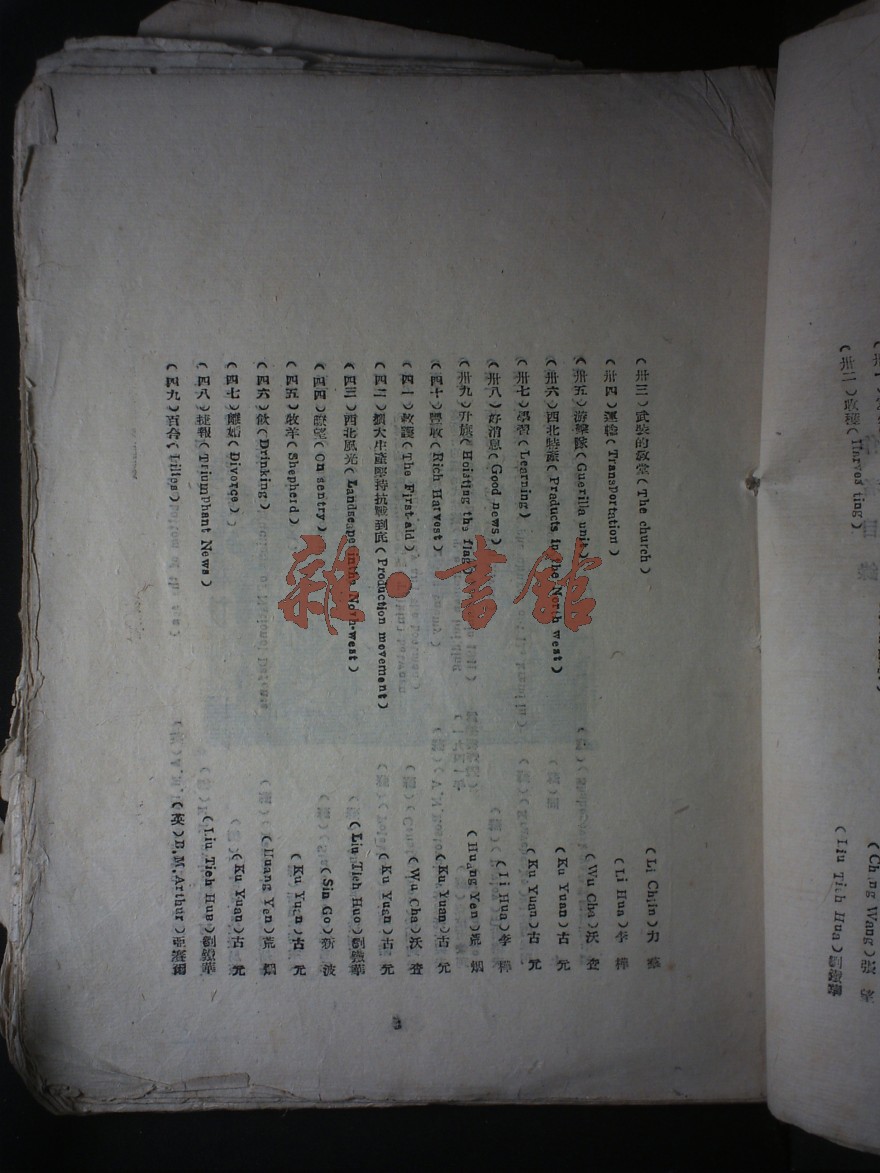 (卅三)武裝的敎堂(The church) (Li Chiin)力 羣
(卅四)運輸(Transportation) (Li Hua)李 樺
(卅五)游擊隊(Guerilla unit (Wu Cha)沃 查
(卅六)西北特產(Praducts in the North west) (Ku Yuan)古 元
(卅七)學習(Learning) (Ku Yuan)古 元
(卅八)好消息(Good news) (Li Hua)李 樺
(卅九)升旗(Hoisting the flag) (Huang Yen)荒 烟
(四十)豐收(Rich Harvest) (Ku Yuan)古 元
(四一)救護(The First-aid) (Wu Cha)沃 查
(四二)擴大生產堅持抗戰到底(Production movement) (Ku Yuan)古 元
(四三)西北風光(Landscape in the North-west) (Liu Tieh Huo)劉鐵華
(四四)瞭望(On sentry) (Sin Go)新 波
(四五)牧羊(Shepherd) (Ku Yuan)古 元
(四六)飲(Drinking) (Huang Yen)荒 烟
(四七)離婚(Divorce) (Ku Yuan)古 元
(四八)捷報(Triumphant News) (Liu Tieh Hua)劉鐵華
(四九)百合(Lilles) (英)B.M.Arthur)亞瑟爾
(Chang Wang)張 望
(卅二)收穫(Harvesting) (Liu Tieh Hua)劉鐵華
雜·書館